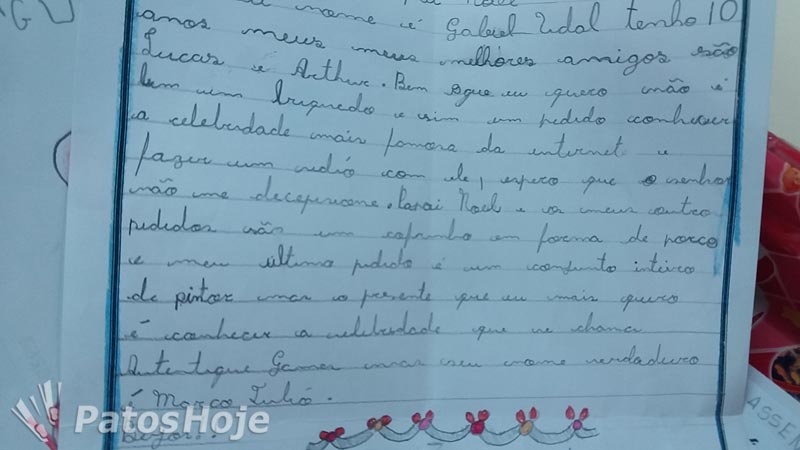 nome é Gabriel Udal tenho 10
anos meus meus melhores amigos são
Lucas e Arthur. Bem oque eu quero não é
bem um briquedo e sim um pedido conhecer
a celebridade mais famosa da internet e
fazer um vidio com ele, espero que o senhor
não me decepicione. Papai Noel e os meus outro
pedidos são um cofrinho em forma de porco
e meu último pedido é um conjunto inteiro
de pintar mas o presente que eu mais quero
é conhecer a celebridade que se chama
Autentique Games mas seu nome verdadeiro
é Marco Tulió.
PatosHoje
ASSEN